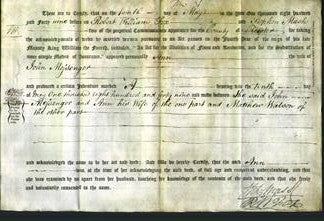 These are to Certify, that on the tenth day of May in the year One thousand eight hundred
and Forty nine before Robert William Fox and Stephen Mack
two of the perpetual Commissioners appointed for the County of
for taking the acknowledgments of deeds by married women pursuant to an Act passed in the Year of the reign of his late
Majesty King William the Fourth, intituled, "An Act for the Abolition of Fines and Recoveries, and for the Substitution of
more simple Modes of Assurance," appeared personally Ann
John Messenger
and produced a certain Indenture marked A bearing date the tenth day
of May One thousand eight hundred and forty nine and made between the said John
Messenger and Ann his Wife of the one part and Matthew Watson of
the other part
and acknowledged the same to be her act and deed; And We do hereby Certify, that the said Ann
was, at the time of her acknowledging the said deed, of full age and competent understanding, and that
she was examined by us apart from her husband, touching her knowledge of the contents of the said deed, and that she freely
and voluntarily consented to the same.